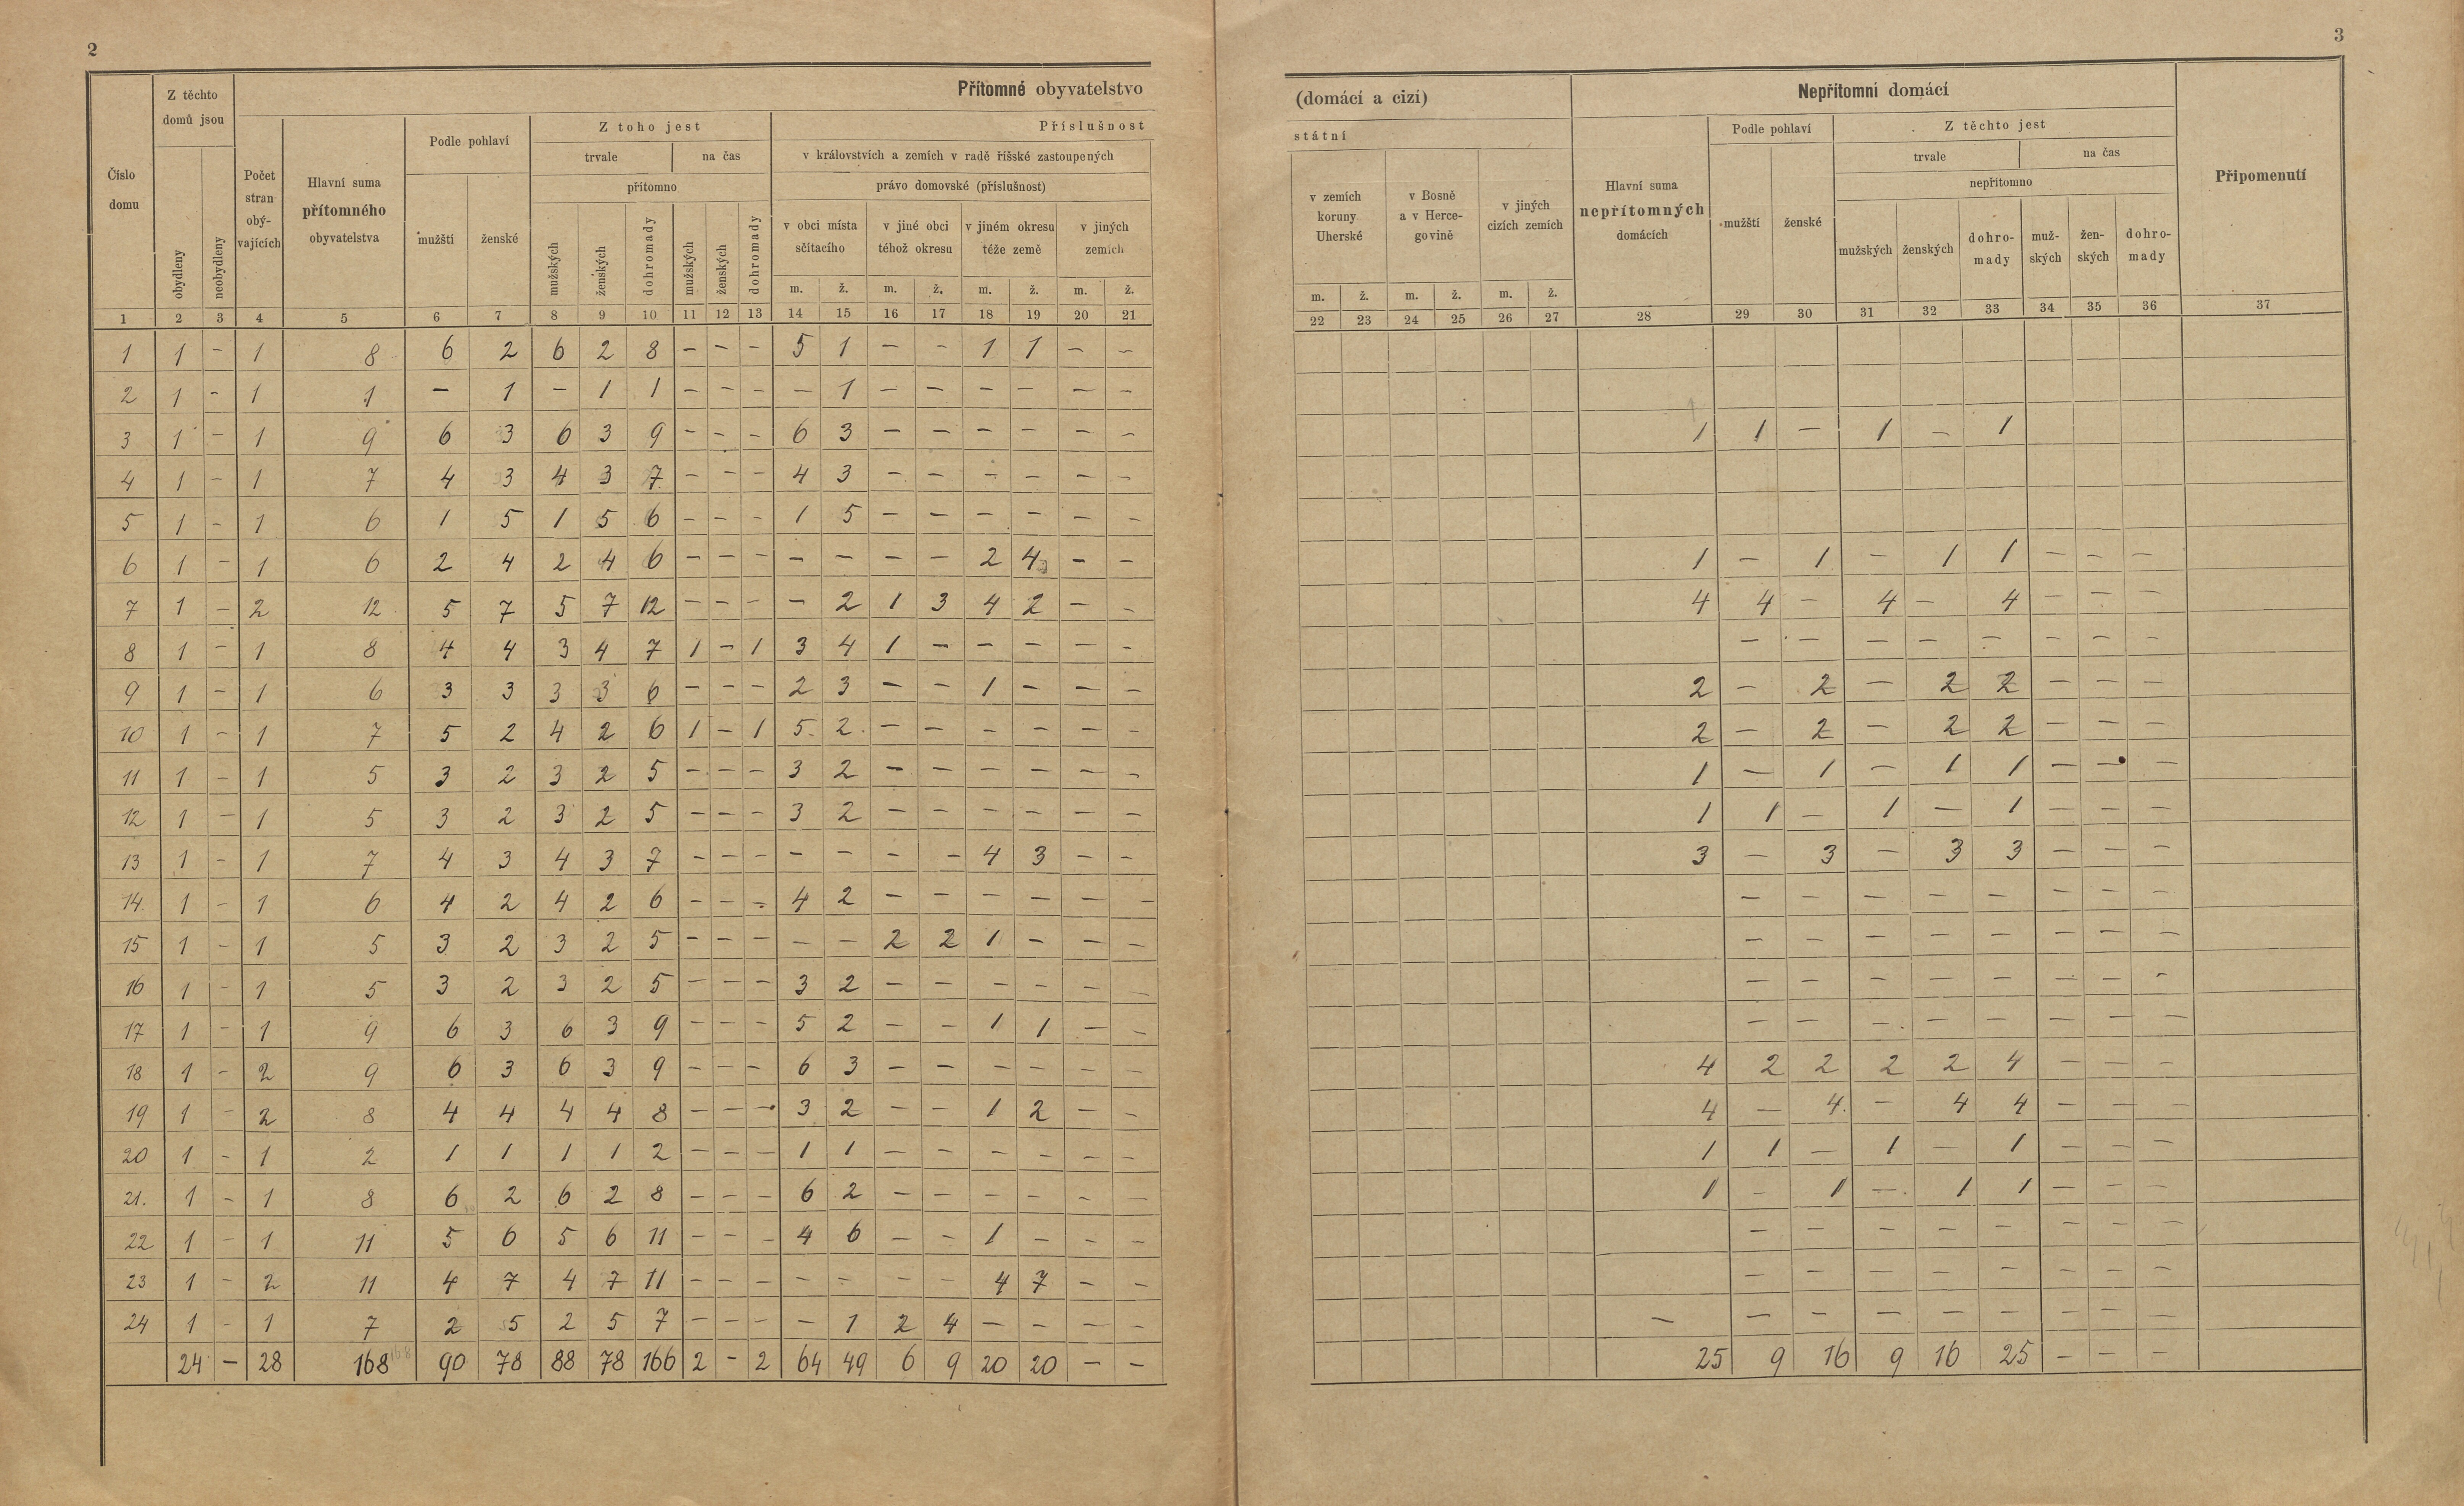 2
3
Přítomné obyvatelstvo
(domácí a cizí)
Nepřítomní domácí
Z těchto domů jsou
Z toho jest
Příslušnost
státní
Podle pohlaví
Z těchto jest
Podle pohlaví
trvale
na čas
v královstvích a zemích v radě říšské zastoupených
trvale
na čas
Číslo domu
Počet stran obý-vajících
Hlavní suma přítomného obyvatelstva
přítomno
právo domovské (příslušnost)
v zemích koruny Uherské
v Bosně a v Herce-govině
v jiných cizích zemích
Hlavní suma nepřítomných domácích
nepřítomno
Připomenutí
obydleny
neobydleny
mužští
ženské
mužských
ženských
dohromady
mužských
ženských
dohromady
v obci místa sčítacího
v jiné obci téhož okresu
v jiném okresu téže země
v jiných zemích
mužští
ženské
mužských
ženských
dohro-mady
muž-ských
žen-ských
dohro-mady
m. ž. m. ž. m. ž. m. ž. m. ž. m. ž. m. ž.
1 2 3 4 5 6 7 8 9 10 11 12 13 14 15 16 17 18 19 20 21 22 23 24 25 26 27 28 29 30 31 32 33 34 35 36 37
1 1 - 1 8 6 2 6 2 8 - - - 5 1 - - 1 1 - -
2 1 - 1 1 - 1 - 1 1 - - - - 1 - - - - - -
3 1 - 1 9 6 3 6 3 9 - - - 6 3 - - - - - - 1 1 - 1 - 1
4 1 - 1 7 4 3 4 3 7 - - - 4 3 - - - - - -
5 1 - 1 6 1 5 1 5 6 - - - 1 5 - - - - - -
6 1 - 1 6 2 4 2 4 6 - - - - - - - 2 4 - - 1 - 1 - 1 1 - - -
7 1 - 2 12 5 7 5 7 12 - - - - 2 1 3 4 2 - - 4 4 - 4 - 4 - - -
8 1 - 1 8 4 4 3 4 7 1 - 1 3 4 1 - - - - - - - - - - - - -
9 1 - 1 6 3 3 3 3 6 - - - 2 3 - - 1 - - - 2 - 2 - 2 2 - - -
10 1 - 1 7 5 2 4 2 6 1 - 1 5 2 - - - - - - 2 - 2 - 2 2 - - -
11 1 - 1 5 3 2 3 2 5 - - - 3 2 - - - - - - 1 - 1 - 1 1 - - -
12 1 - 1 5 3 2 3 2 5 - - - 3 2 - - - - - - 1 1 - 1 - 1 - - -
13 1 - 1 7 4 3 4 3 7 - - - - - - - 4 3 - - 3 - 3 - 3 3 - - -
14. 1 - 1 6 4 2 4 2 6 - - - 4 2 - - - - - - - - - - - - - -
15 1 - 1 5 3 2 3 2 5 - - - - - 2 2 1 - - - - - - - - - - -
16 1 - 1 5 3 2 3 2 5 - - - 3 2 - - - - - - - - - - - - - -
17 1 - 1 9 6 3 6 3 9 - - - 5 2 - - 1 1 - - - - - - - - - -
18 1 - 2 9 6 3 6 3 9 - - - 6 3 - - - - - - 4 2 2 2 2 4 - - -
19 1 - 2 8 4 4 4 4 8 - - - 3 2 - - 1 2 - - 4 - 4 - 4 4 - - -
20 1 - 1 2 1 1 1 1 2 - - - 1 1 - - - - - - 1 1 - 1 - 1 - - -
21. 1 - 1 8 6 2 6 2 8 - - - 6 2 - - - - - - 1 - 1 - 1 1 - - -
22 1 - 1 11 5 6 5 6 11 - - - 4 6 - - 1 - - - - - - - - - - -
23 1 - 2 11 4 7 4 7 11 - - - - - - - 4 7 - - - - - - - - - -
24 1 - 1 7 2 5 2 5 7 - - - - 1 2 4 - - - - - - - - - - - - -
24 - 28 168 168 90 78 88 78 166 2 - 2 64 49 6 9 20 20 - - 25 9 16 9 16 25 - - -